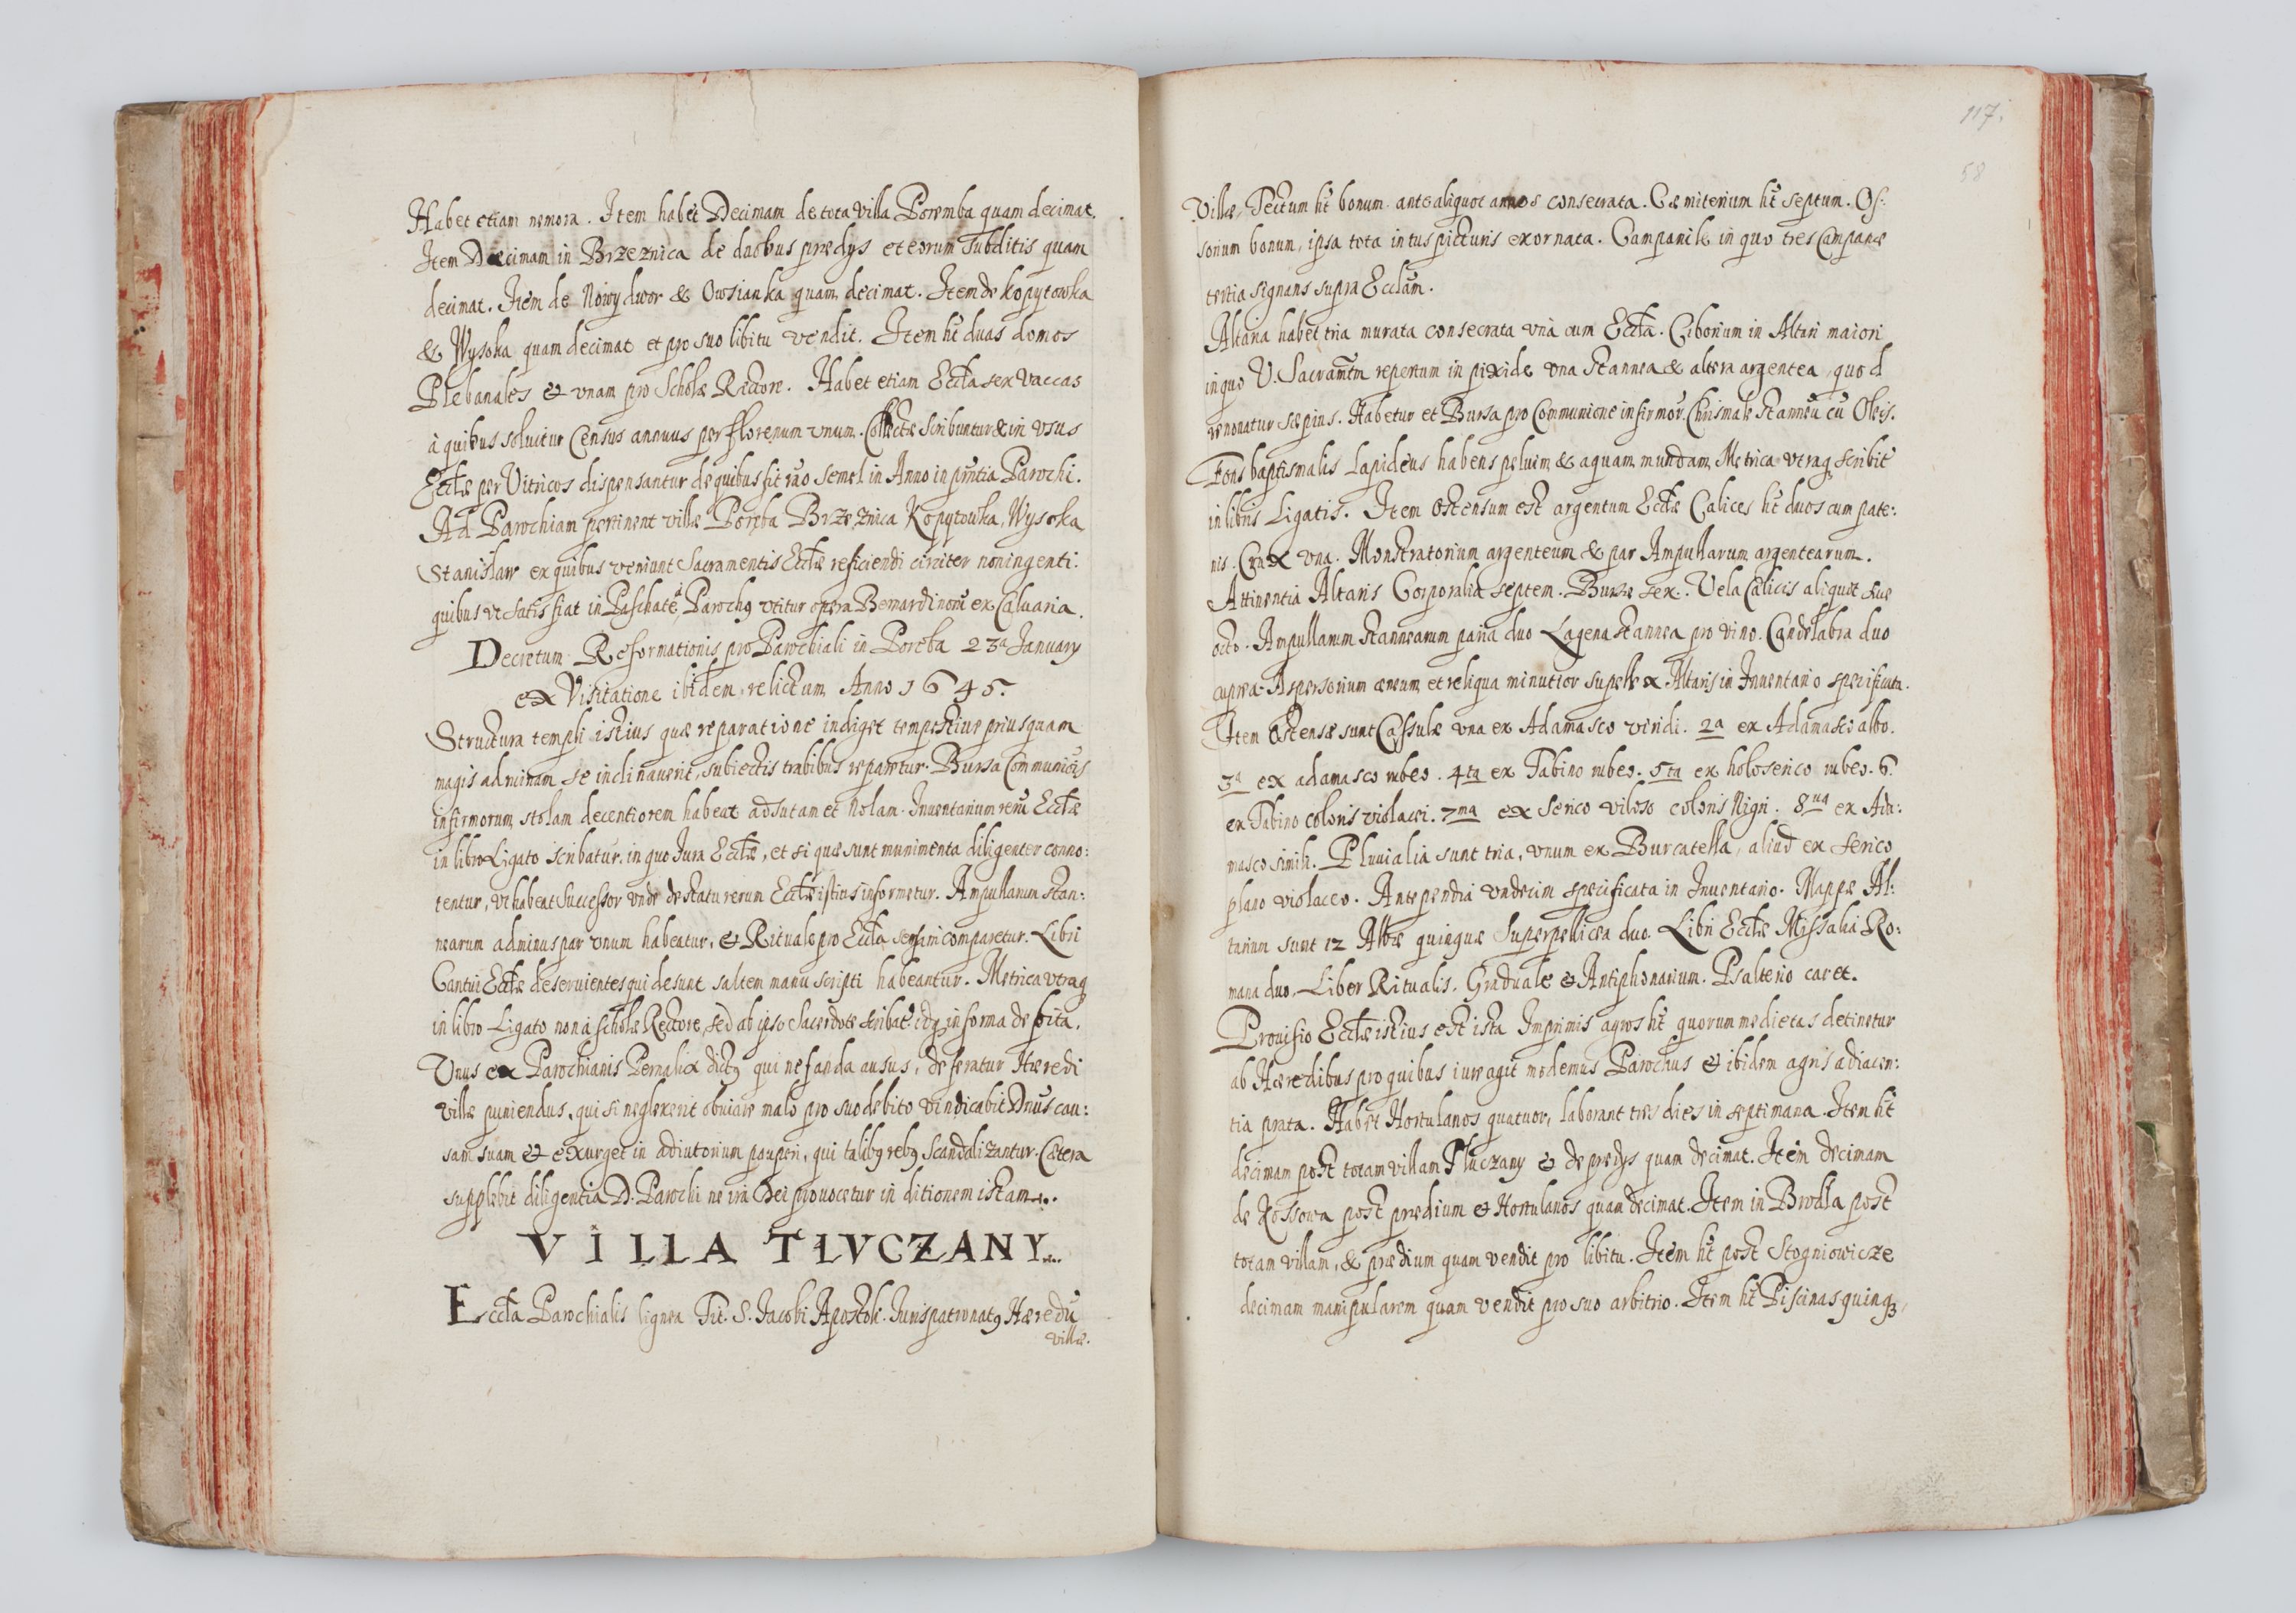 Habet etiam nemora. Item habet Decimam de tota villa Poremba quam decimat.
Item Decimam in Brzeznica de duobus prædys et eorum subditis quam
decimat. Item de Nowy dwor & Owsianka quam decimat. Item de Kopytowka
& Wysoka quam decimat et pro suo libitu vendit. Item ht duas domos
Plebanales & vnam pro Scholæ Rectore. Habet etiam Eccła sex vaccas
à quibus soluitur Census annuus per florenum vnum. Collectæ scribuntur & in vsus
Ecclæ per Vitricos dispensantur de quibus fit rão semel in Anno in pñtia Parochi.
Ad Parochiam pertinent villæ Poręba Brzeznica Kopytowka, Wysoka
Stanisław ex quibus veniunt Sacramentis Ecclæ reficiendi circiter noningenti:
quibus vt satis fiat in Paschate, Parochꝰ vtitur opera Bernardinorũ ex Caluaria.
Decretum Reformationis pro Parochiali in Poręba 23a January
ex Visitatione ibidem relictum Anno 1645.
Structura templi istius quæ reparatione indiget tempestiue priusquam
magis ad ruinam se inclinauerit, subiectis trabibus reparetur. Bursa Communiõis
infirmorum stolam decentiorem habeat adsutam et Nolam. Inuentarium rerũ Ecclæ
in libro Ligato scribatur, in quo Iura Ecclæ, et si quæ sunt munimenta diligenter conno:
tentur, vt habeat Successor vnde de statu rerum Ecclæ istius informetur. Ampullarum stan:
nearum ad minus par vnum habeatur, & Rituale pro Eccła sensim comparetur. Libri
Cantui Ecclæ deseruientes qui desunt saltem manu scripti habeantur. Metrica vtraq
in libro Ligato non à scholæ Rectore, sed ab ipso Sacerdote scribat' idq in forma debita.
Vnus ex Parochianis Pernalix dictꝰ qui nefanda ausus, deferatur Hæredi
villæ puniendus, qui si neglexerit obuiare malo pro suo debito vindicabit Dñus cau:
sam suam & exurget in adiutorium pauperi, qui talibꝰ rebꝰ scandalizantur. Cætera
supplebit diligentia D. Parochi ne ira Dei prouocetur in ditionem istam.
VILLA TŁVCZANY
Eccła Parochialis lignea Tit. S. Iacobi Apostoli. Iurispatronatꝰ Hæredũ
villæ.
117.
58
Villæ, Tectum ht bonum. ante aliquot annos consecrata. Cæmiterium ht septum. Os:
sorium bonum, ipsa tota intus picturis exornata. Campanile in quo tres Campanæ
tertia signans supra Ecclãm.
Altaria habet tria murata consecrata vnà cum Eccła. Ciborium in Altari maiori
in quo V. Sacramtm repertum in pixide vna stannea & altera argentea, quod
renouatur sæpius. Habetur et Bursa pro Communione infirmor. Chrismale stanneũ cũ Oleis.
Fons baptismalis Lapideus habens peluim & aquam mundam, Metrica vtraq scribit'
in libris Ligatis. Item ostensum est argentum Ecclæ Calices ht duos cum pate:
nis. Crux vna. Monstratorium argenteum & par Ampullarum argentearum.
Attinentia Altaris Corporalia septem. Bursæ sex. Vela Calicis aliquot siue
octo. Ampullarum stannearum paria duo Lagena stannea pro vino. Candelabra duo
cuprea. Aspersorium æneum et reliqua minutior supellex Altaris in Inuentario specificata.
Item Ostensæ sunt Cassulæ vna ex Adamasco viridi. 2a ex Adamasco albo.
3a ex adamasco rubeo. 4ta ex Tabino rubeo. 5ta ex holoserico rubeo. 6.
ex Tabino coloris violacei. 7ma ex Serico viloso coloris Nigri. 8ua ex Ada:
masco simili. Pluuialia sunt tria, vnum ex Burcatella, aliud ex serico
plano violaceo. Antependia vndecim specificata in Inuentario. Mappæ Al:
tarium sunt 12 Albæ quinque Superpellicea duo. Libri Ecclæ Missalia Ro:
mana duo. Liber Ritualis. Graduale & Antiphonarium. Psalterio caret.
Prouisio Ecclæ istius est ista Imprimis agros ht quorum medietas detinetur
ab Hæredibus pro quibus iure agit modernus Parochus & ibidem agris adiacen:
tia prata. Habet Hortulanos quatuor, laborant tres dies in septimana. Item ht
decimam post totam villam Tłuczany & de prædys quam decimat. Item decimam
de Kossowa post prædium & Hortulanos quam decimat. Item in Brodła post
totam villam, & prædium quam vendit pro libitu. Item ht post Stogniowicze
decimam manipularem quam vendit pro suo arbitrio. Item ht Piscinas quinqꝫ